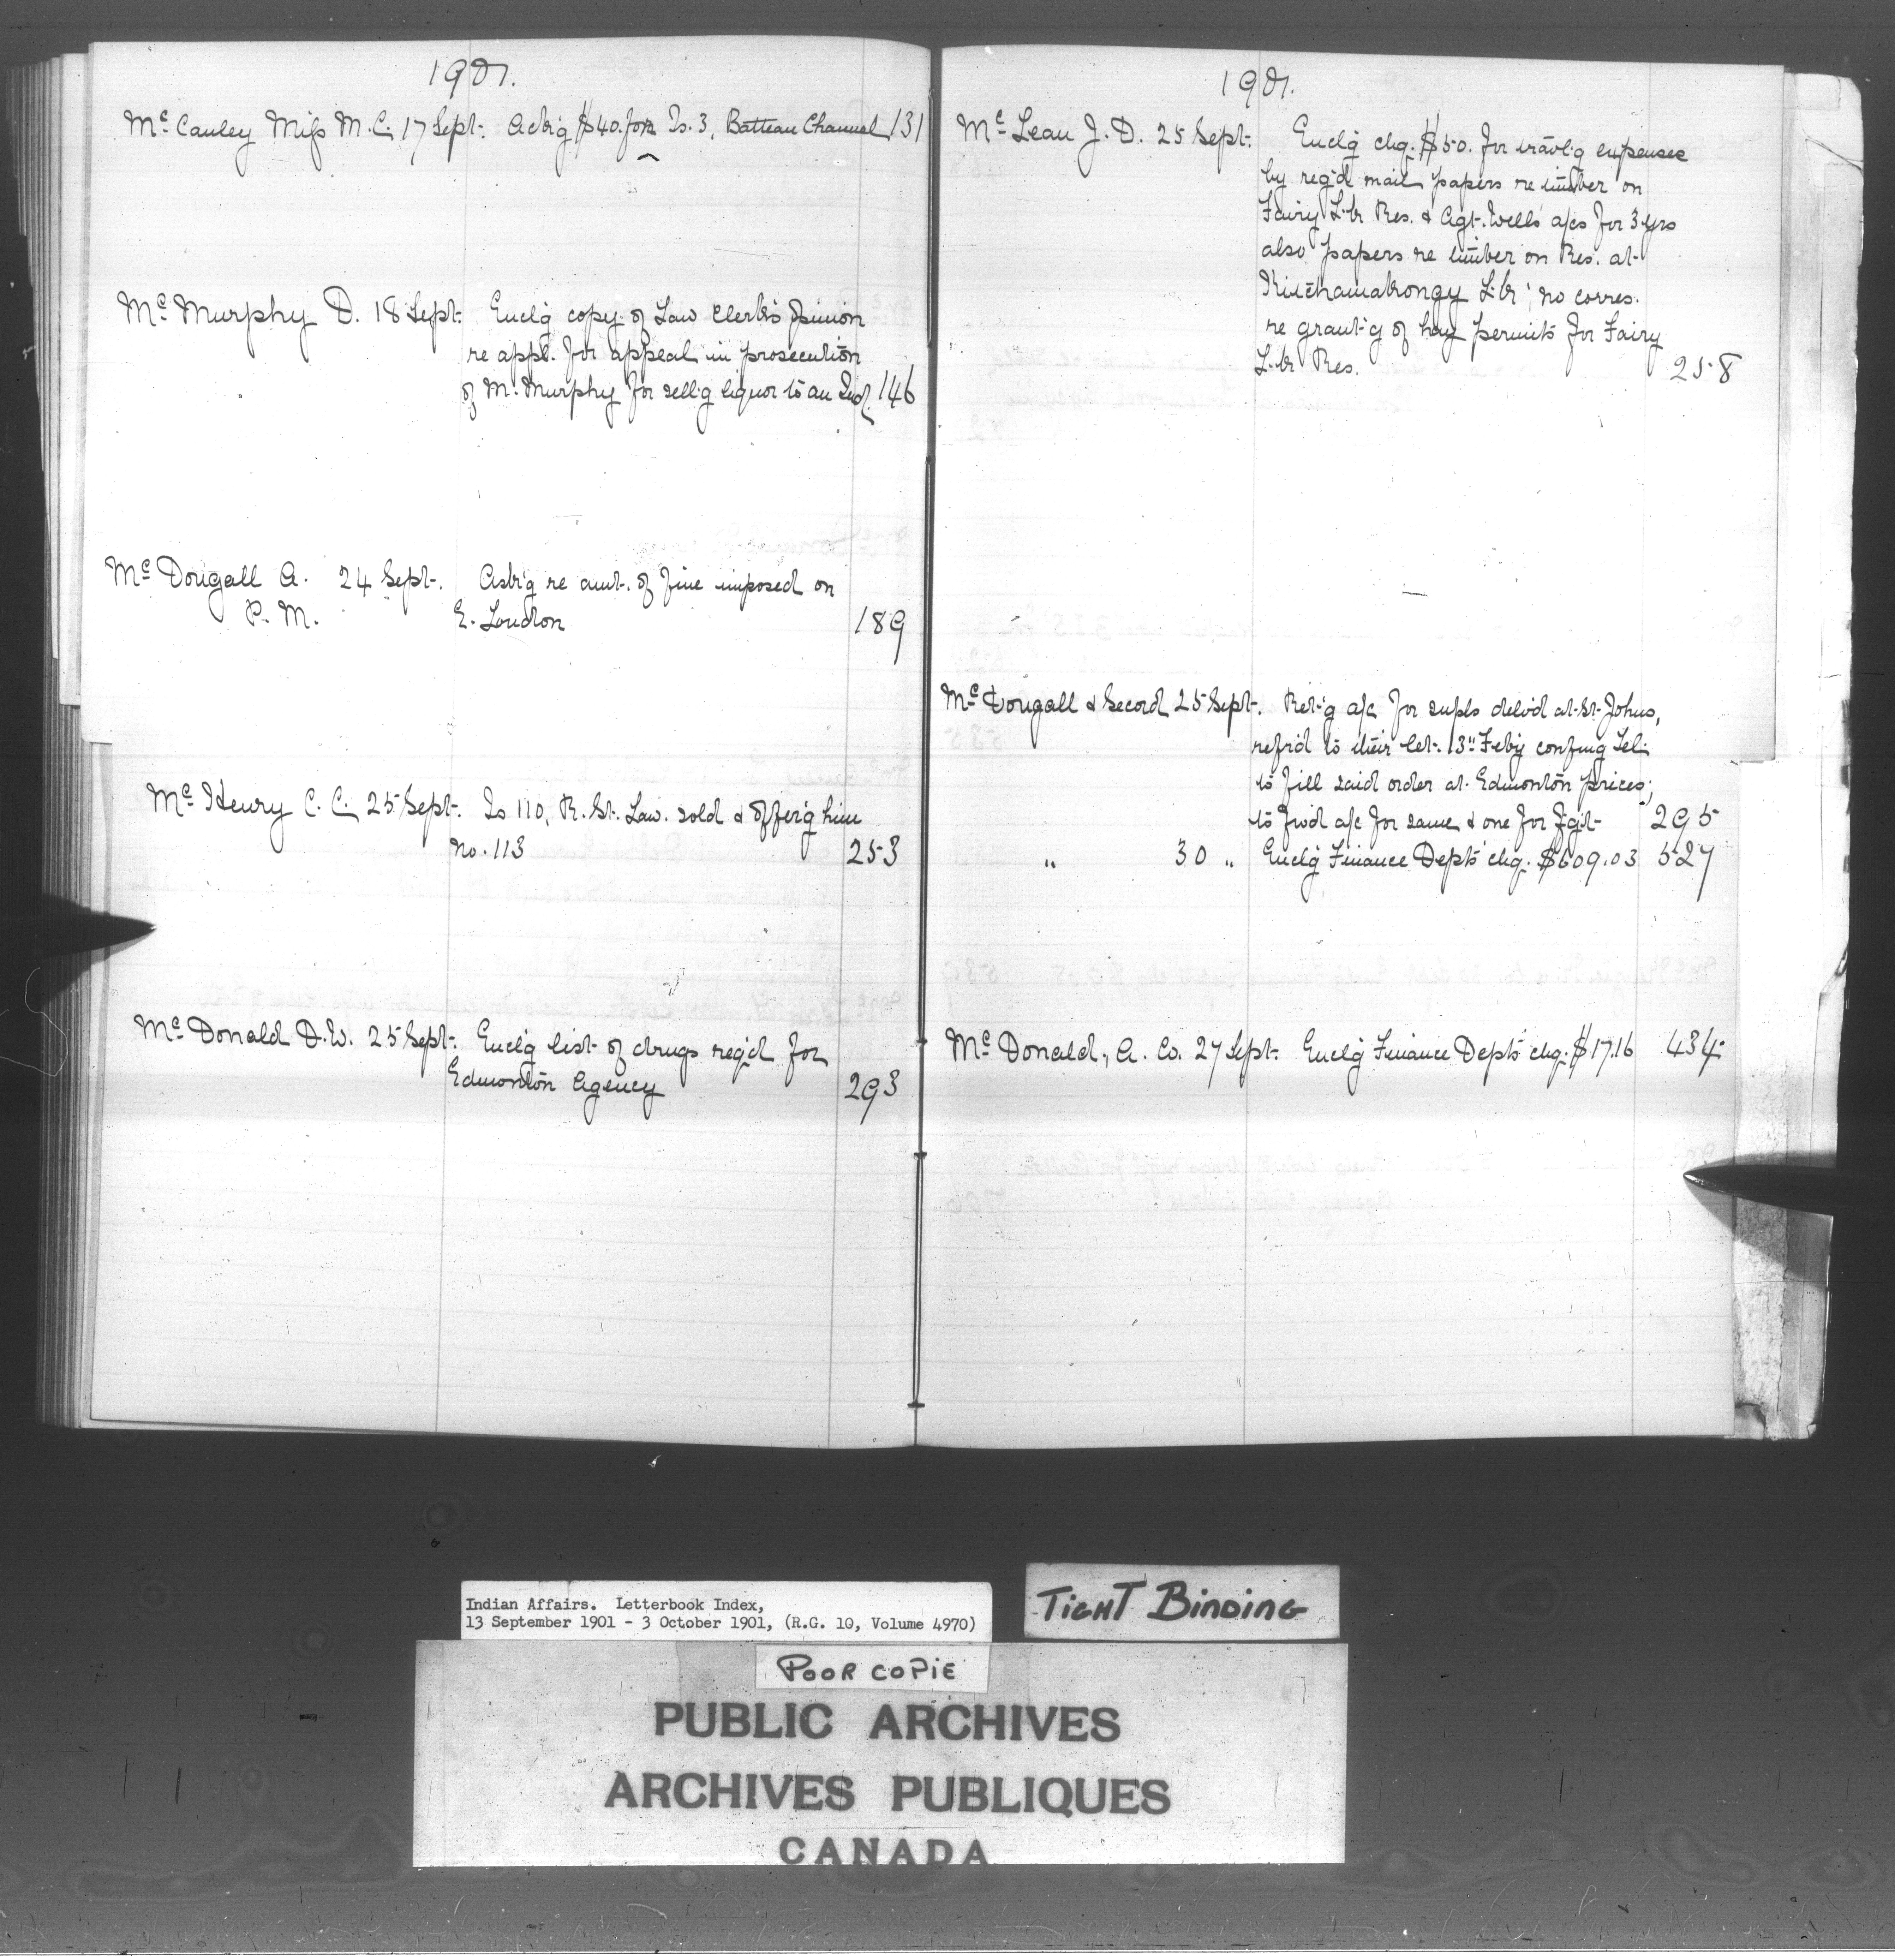 1901.
McCauley Miss M.C. 17 Sept. Ackg $40. for Is. 3, Batteau Channel 131
McMurphy D. 18 Sept. Enclg copy of Law Clerk's Opinion
re appl. for appeal in prosecution
of McMurphy for sellg liquor to an Ind. 146
McDougall A. 24 Sept. Askg re amt. of fine imposed on
P.M. E. Loudon 189
McHenry C.C. 25 Sept. Is 110, R. St. Law. sold & offerg him
No. 113 253
McDonald D.W. 25 Sept. Enclg list of drugs reqd for
Edmonton Agency 293
1901.
McLean J.D. 25 Sept. Enclg chq. $50. for travlg expenses
by regd mail papers re timber on
Fairy Hr Res. & Agt. Wells' a/cs for 3 yrs
also papers re timber on Res. at
no corres.
re grantg of hay permits for Fairy
Hr Res. 258
McDougall & Secord 25 Sept. Retg a/c for supls delvd at St. Johns,
refrd to their let. 13" Feby confmg Tel.
to fill said order at Edmonton prices;
to fwd a/c for same & one for frgt 295
" 30 " Enclg Finance Dept's chq. $609.03 527
McDonald, A. Co. 27 Sept. Enclg Finance Dept's chq. $17.16 434
Indian Affairs. Letterbook Index,
13 September 1901 - 3 October 1901, (R.G. 10, Volume 4970)
TIGHT BINDING
POOR COPIE
PUBLIC ARCHIVES
ARCHIVES PUBLIQUES
CANADA